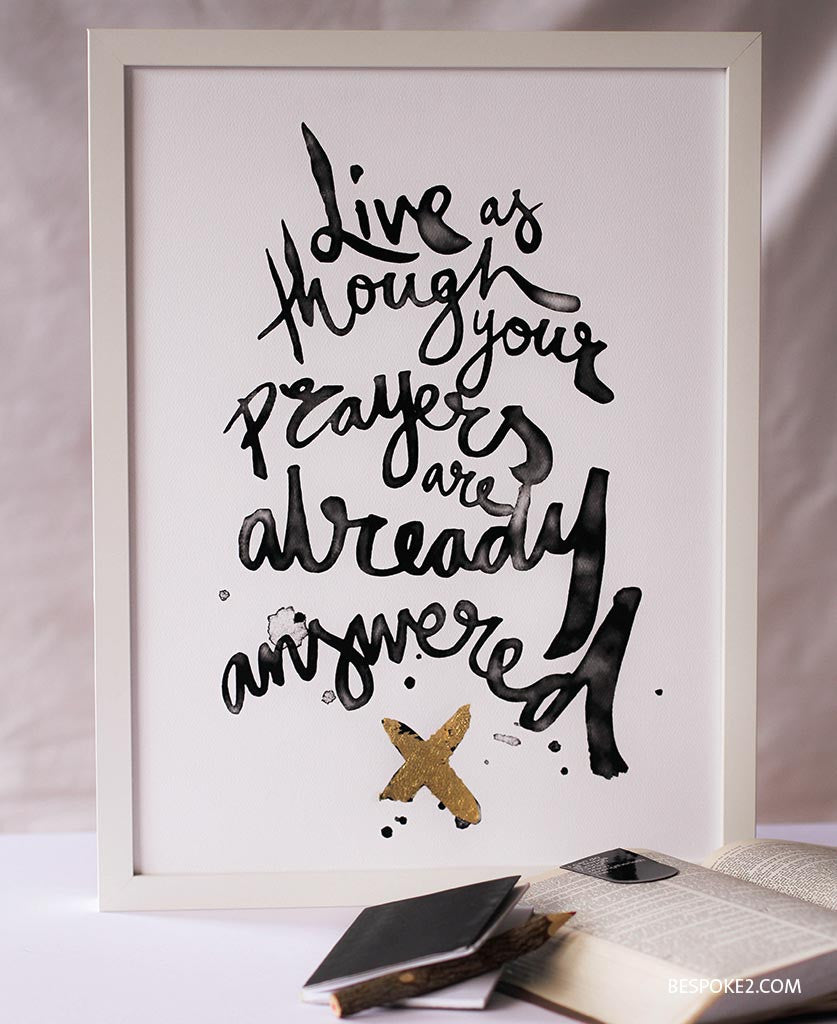 Live as
though
your
Prayers
are
already
answered
X
BESPOKE2.COM